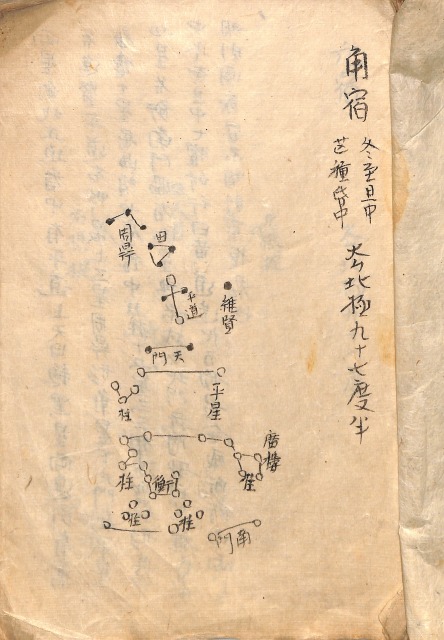 角宿
冬至旦中
芒種昏中
去北極九十七度半
周鼎
田
平道
進賢
天門
平星
柱
庫樓
柱
衡
柱
柱
柱
南門